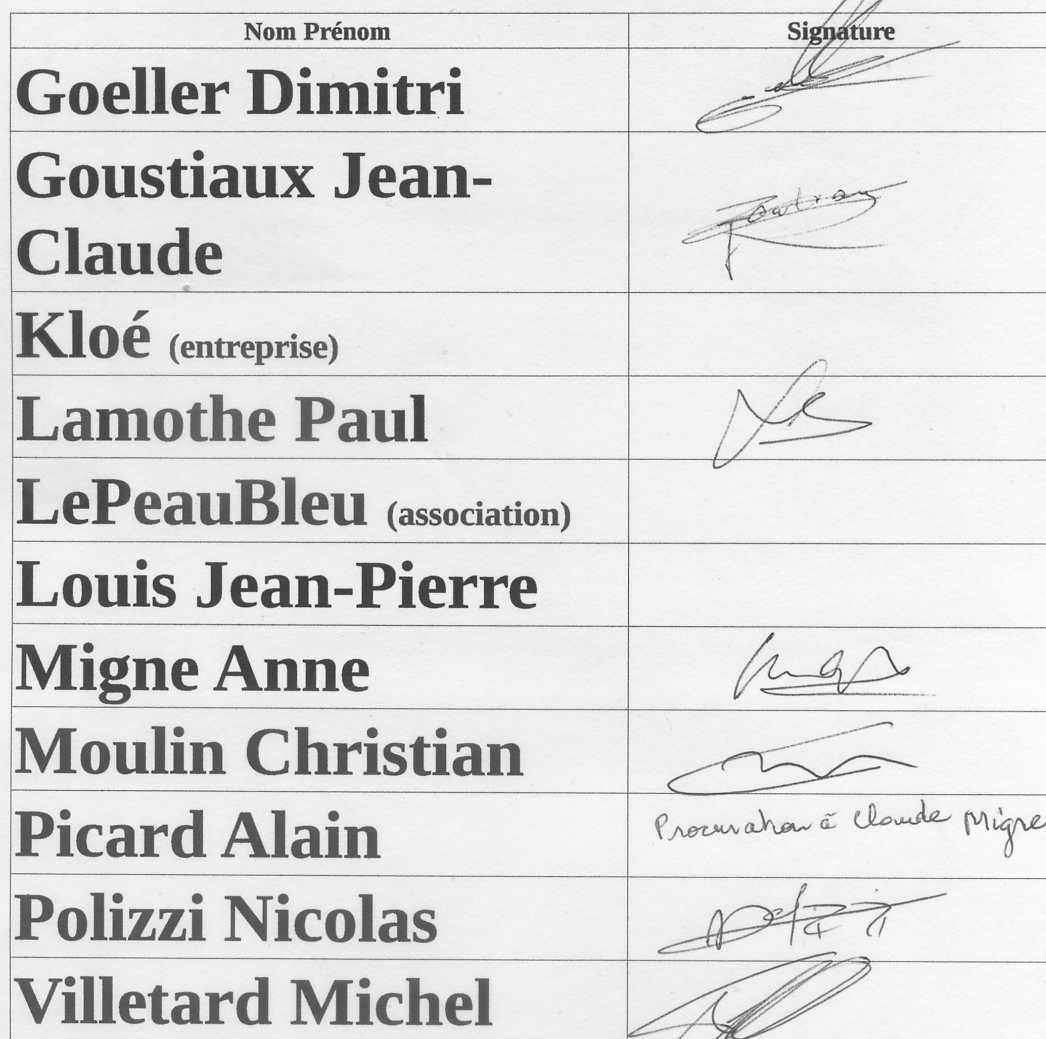 Nom Prénom Signature
Goeller Dimitri
Goustiaux Jean-
Claude
Kloé (entreprise)
Lamothe Paul
LePeauBleu (association)
Louis Jean-Pierre
Migne Anne
Moulin Christian
Picard Alain Procuration à Claude Migne
Polizzi Nicolas
Villetard Michel